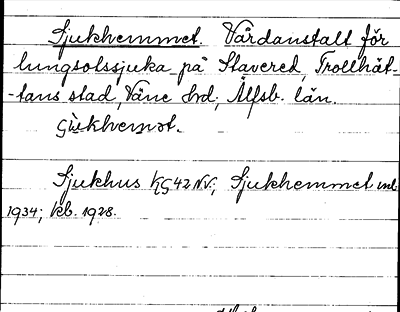 Sjukhemmet. Vårdanstalt för
lungsotssjuka på Stavered, Trollhät-
-tans stad, Väne hd., Älfsb. län.
Sjukhus KG42NV.; Sjukhemmet
1934; kb. 1928.